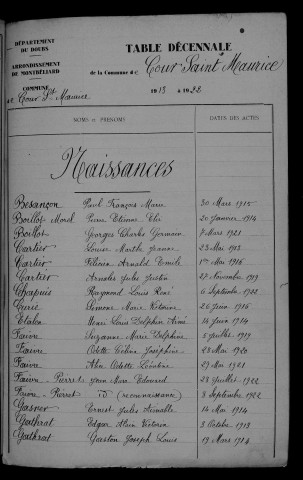 DÉPARTEMENT
DU DOUBS
ARRONDISSEMENT
DE MONTBÉLIARD
COMMUNE
de Cour St Maurice
TABLE DÉCENNALE
de la Commune de Cour Saint Maurice
1913 à 1922
NOMS et PRÉNOMS
DATES DES ACTES
Naissances
Besançon Paul François Marie 30 Mars 1915
Boillot Morel Pierre Etienne 20 Janvier 1914
Boillot Georges Charles Germain Mars 1921
Cartier Louise Marthe Jeanne 23 Mai 1913
Cartier Félicien Arnold Emile 1er Mai 1916
Cartier Jules Justin Novembre 1919
Chapuis Raymond Louis René 6 Septembre 1922
Curie Simone Marie Victorine 26 Juin 1916
Etalon Henri Louis Delphin Aimé 14 Juin 1914
Faivre Suzanne Marie Delphine 5 Juillet 1919
Faivre Odette Céline Joséphine 23 Mai 1920
Faivre Odette 29 Mai 1921
Faivre Pierret Jean Marc Edouard 23 Juillet 1922
Faivre Pierret id (reconnaissance) 8 Septembre 1922
Gasner Ernest Jules Aimable 14 Mai 1914
Gathrat Edgar Alvin Victorin 3 Octobre 1913
Gathrat Gaston Joseph Louis 19 Mars 1914